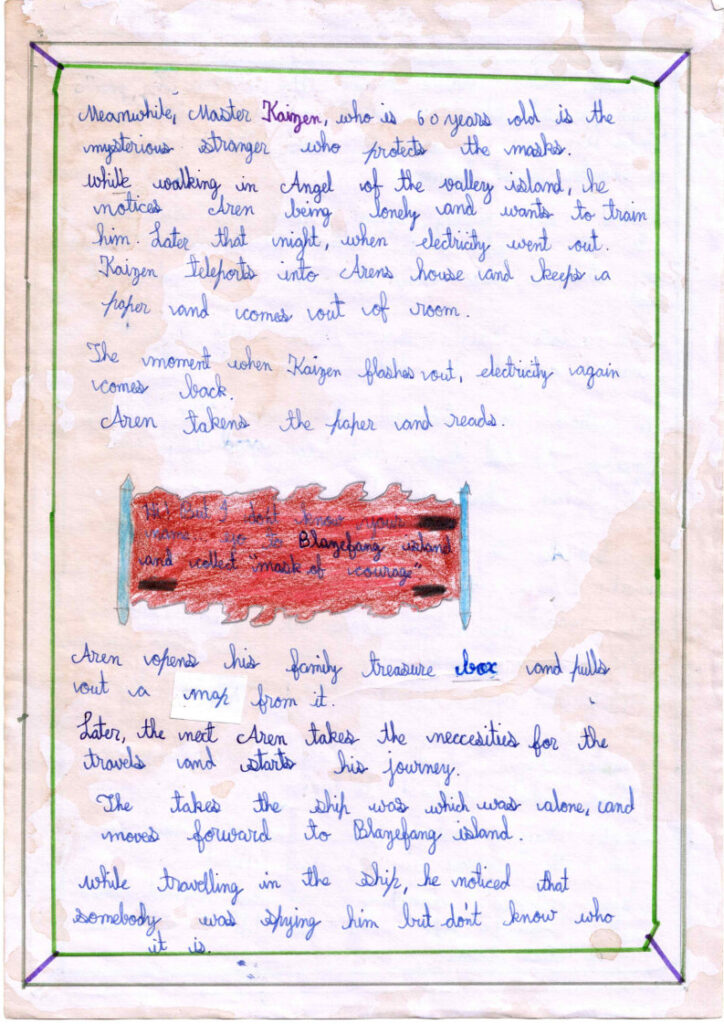 Meanwhile, Master Kaizen, who is 60 years old is the
mysterious stranger who protects the masks.
while walking in Angel of the valley island, he
notices Aren being lonely and wants to train
him. Later that night, when electricity went out.
Kaizen teleports into Arens house and keeps a
paper and comes out of room.
The moment when Kaizen flashes out, electricity again
comes back.
Aren takens the paper and reads.
Hi! But I don't know your
name. go to Blazefang island
and collect "mask of courage"
Aren opens his family treasure box and pulls
out a map from it.
Later, the next Aren takes the neccesities for the
travels and starts his journey.
The takes the ship was which was alone, and
moves forward to Blazefang island.
while travelling in the ship, he noticed that
somebody was spying him but don't know who
it is.